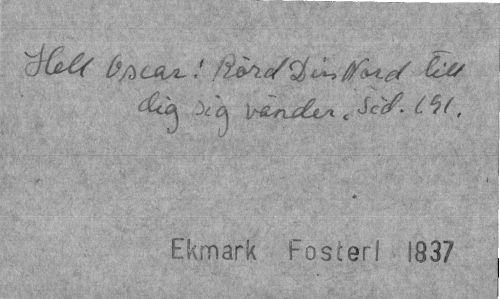 Hell Oscar! Rörd Din Nord till
dig sig vänder. Sid. 191.
Ekmark Fosterl 1837